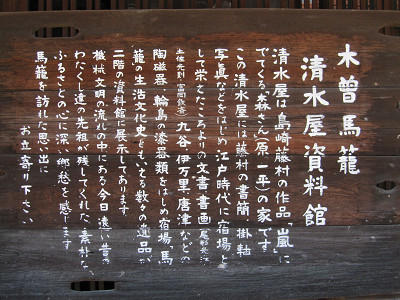 木曽馬籠
清水屋資料館
清水屋は島崎藤村の作品「嵐」に
でてくる森さん(原一平)の家です
この清水屋には藤村の書簡、掛軸
写真などをはじめ、江戸時代に宿場と
して栄えたころよりの文書、書画
九谷、伊万里、唐津などの
陶磁器、輪島の漆器類をはじめ宿場「馬
籠」の生活文化史ともいえる数々の遺品が
二階の資料館に展示しております
機械文明の流れの中にある今日、遠い昔の
わたくし達の先祖が残してくれた素朴な
ふるさとの心に深い郷愁を感じます
馬籠を訪れた思い出に
お立寄り下さい